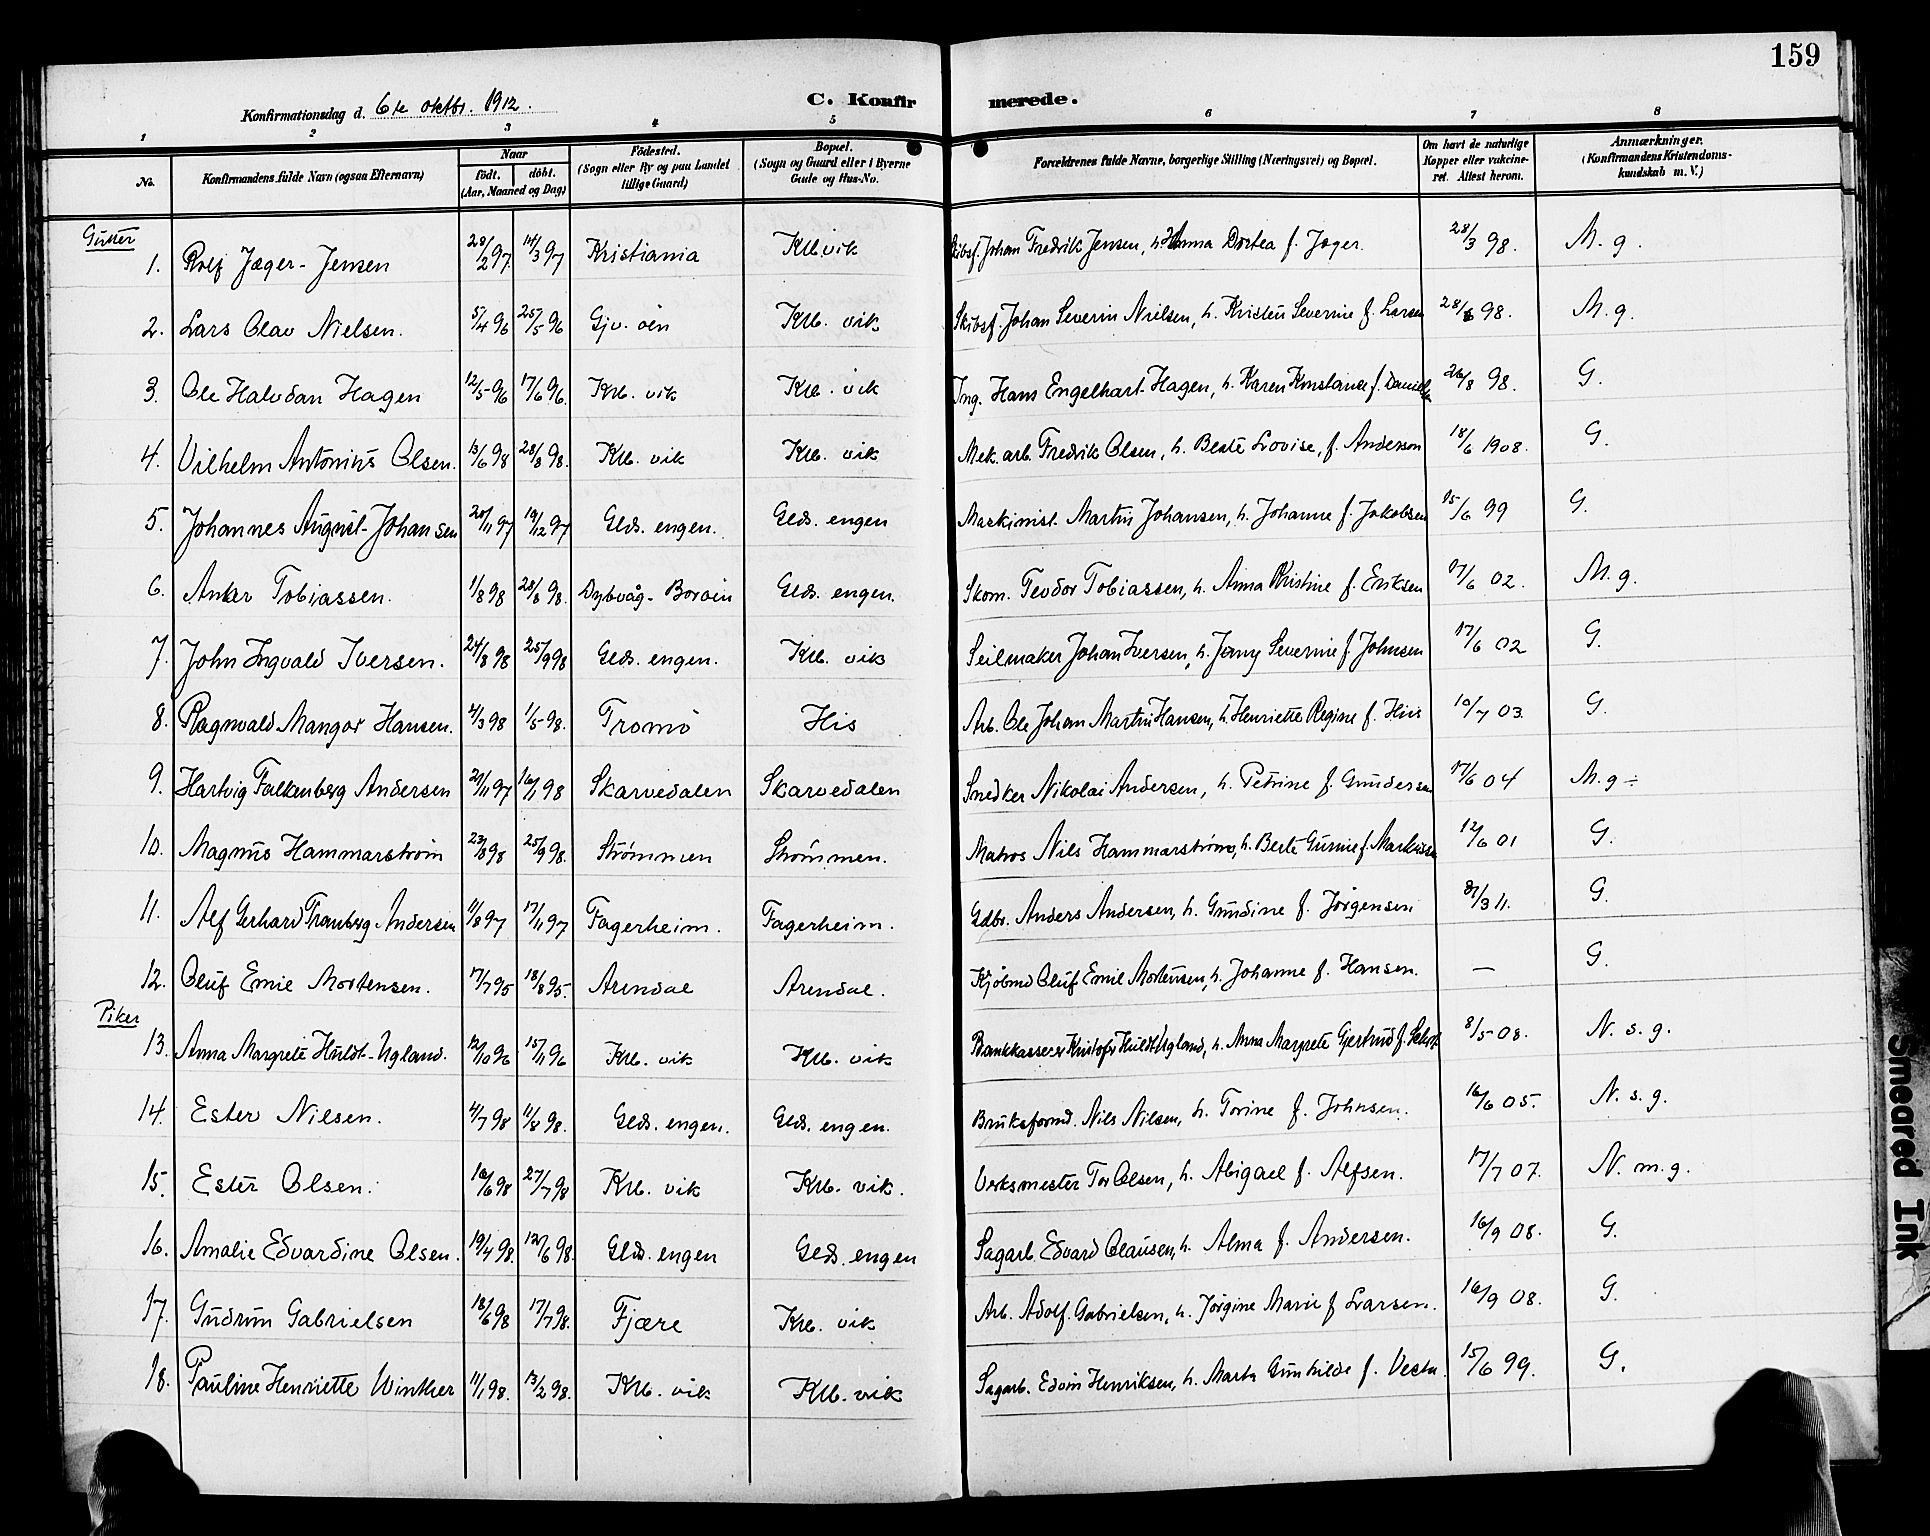 159
Konfirmationsdag d. 6te oktbr. 1912. C. Konfirmerede.
1 2 3 4 5 6 7 8
No. Konfirmandens fulde Navn (ogsaa Efternavn) Naar født. døbt. (Aar, Maaned og Dag) Fødested. (Sogn eller By og paa Landet tillige Gaard) Bopæl. (Sogn og Gaard eller i Byerne Gade og Hus-No. Forældrenes fulde Navne, borgerlige Stilling (Næringsvei) og Bopæl. Om havt de naturlige Kopper eller vakcineret. Attest herom. Anmærkninger. (Konfirmandens Kristendomskundskab m. V.)
Gutter
1. Rolf Jæger-Jensen 28/2 97. 14/3 97 Kristiania Klb. vik Skibsf. Johan Fredrik Jensen, h. Anna Dortea f. Jæger. 28/3 98. M. g.
2. Lars Olav Nielsen. 5/4 96 25/5 96 Gjv. öen Klb. vik Skibsf. Johan Severin Nielsen, h. Kristen Severine f. Larsen 28/8 98. M. g.
3. Ole Halvdan Hagen 12/5 96 17/6 96. Klb. vik Klb. vik Ing. Hans Engelhart Hagen, h. Karen Konstance f. 26/8 98. G.
4. Vilhelm Antonius Olsen. 13/6 98 28/8 98. Klb. vik Klb. vik Mek. arb. Fredrik Olsen, h. Beate Lovise, f. Anderson 18/6 1908. G.
5. Johannes August Johansen 20/11 97 19/12 97 Glds. engen. Glds. engen Maskinist. Martin Johansen, h. Johanne f. Jakobsen 15/6 99 G.
6. Anker Tobiassen. 1/8 98 28/8 98. Dybvåg-Boröin Glds. engen. Skom. Teodor Tobiassen, h. Anna Kristine f. Eriksen 17/6 02. M. g.
7. John Ingvald Iversen. 24/8 98 25/9 98 Glds. engen. Klb. vik Seilmaker Johan Iversen, h. Jenny Severine f. Johnsen 17/6 02 G.
8. Ragnvald Mangor Hansen. 4/3 98 1/5 98. Tromö His Arb. Ole Johan Martin Hansen, h. Henriette Regine f. Hiis 10/7 03. G.
9. Hartvig Falkenberg Andersen 29/11 97 16/1 98 Skarvedalen Skarvedalen Snedker Nikolai Andersen, h. Petrine f. Gundersen 17/6 04 M. g ÷
10. Magnus Hammarström 23/8 98 25/9 98. Strømmen Strømmen. Matros Nils Hammarstrøm, h. Berte Gurine f. 12/6 01 G.
11. Alf Gerhard Tranberg Andersen 11/8 97 17/11 97 Fagerheim. Fagerheim. Gdbr. Anders Andersen, h. Gundine f. Jörgensen 31/3 11. G.
12. Oluf Emil Mortensen. 17/7 95 18/8 95. Arendal Arendal. Kjöbmd Oluf Emil Mortensen, h. Johanne f. Hansen. — G.
Piker
13. Anna Margrete Huldt-Ugland. 12/10 96 15/11 96 Klb. vik Klb. vik Bankkasserer Kristofer Huldt Ugland, h. Anna Margrete Gjertrud f. 8/5 08. N. s. g.
14. Ester Nilsen. 4/7 98 11/8 98. Glds. engen. Glds. engen. Bruksformd. Nils Nilsen, h. Torine f. Johnsen. 16/6 05. N. s. g.
15. Ester Olsen. 16/6 98 27/7 98 Klb. vik Klb. vik. Verksmester Tor Olsen, h. Abigael f. Alfsen. 17/7 07. N. m. g.
16. Amalie Edvardine Olsen. 19/4 98. 12/6 98. Glds. engen Glds. engen Sagarb. Edvard Clausen, h. Alma f. Andersen. 16/9 08. G.
17. Gudrun Gabrielsen 18/6 98 17/7 98. Fjære Klb. vik Arb. Adolf Gabrielsen, h. Jörgine Marie f Larsen. 16/9 08. G.
18. Pauline Henriette Winther 11/1 98. 13/2 98. Klb. vik Klb. vik Sagarb. Edvin Henriksen, h. Marta Gunhilde f. 15/6 99. G.
Smeared Ink